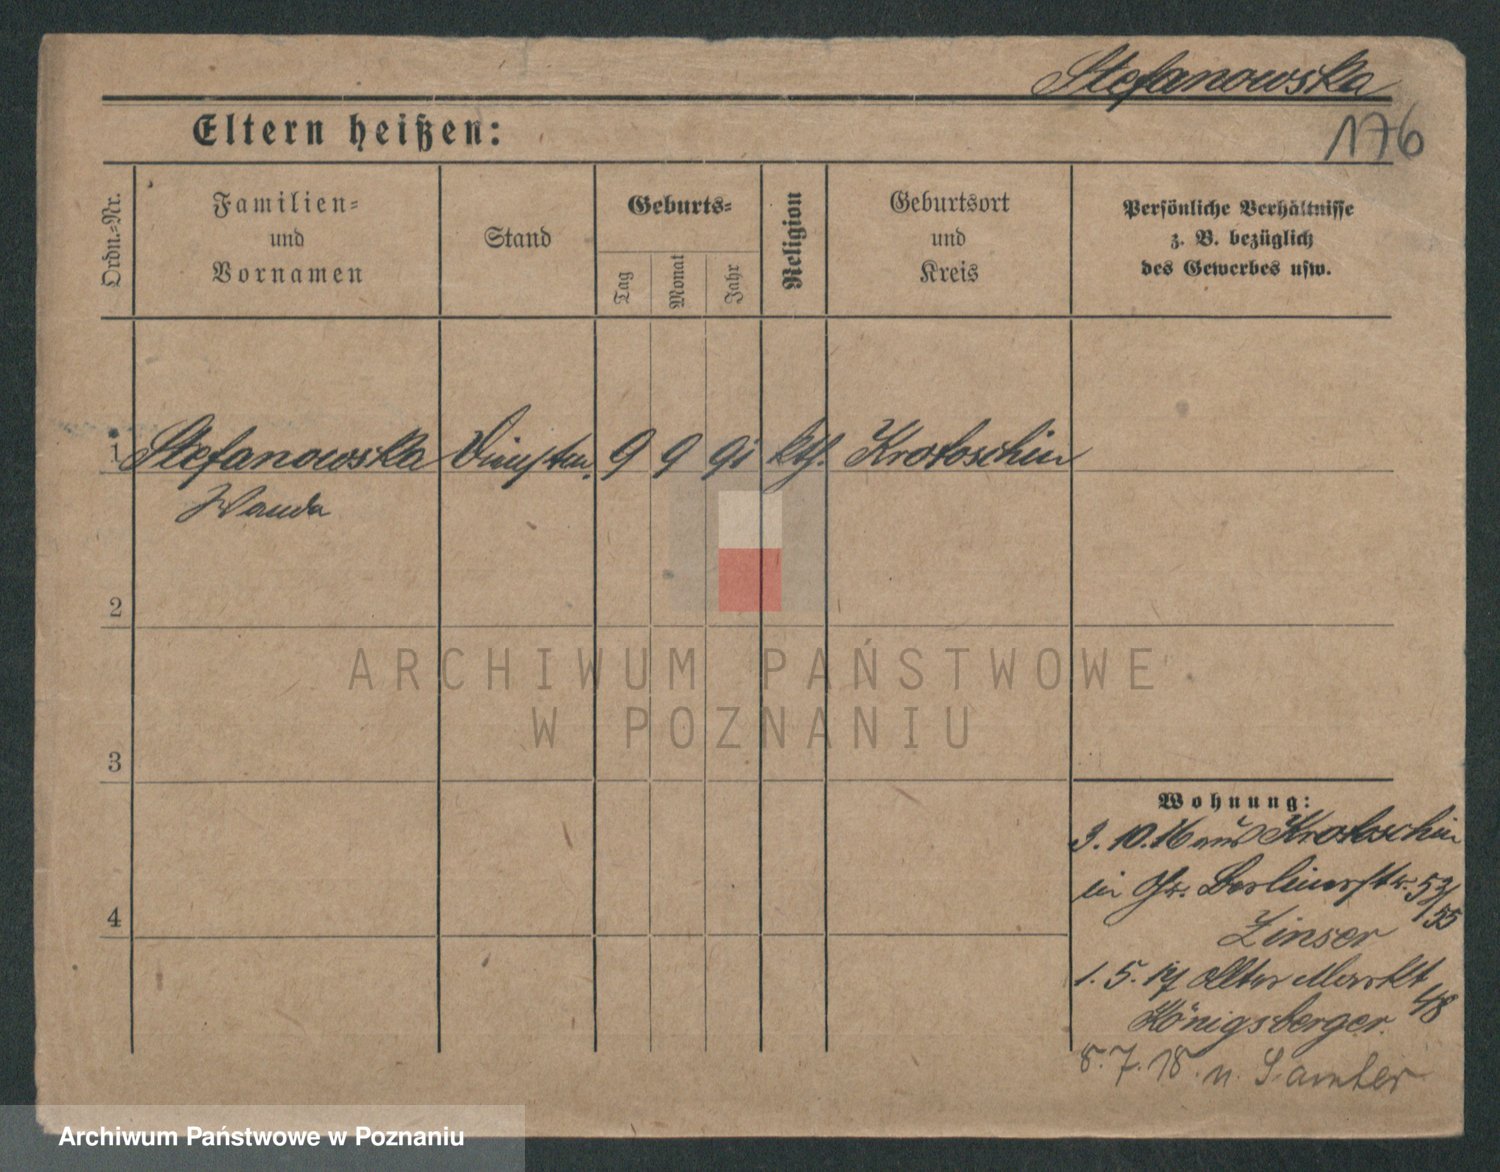 Stefanowska
176
Eltern heißen:
Ordn.-Nr.
Familien-
und
Vornamen
Stand
Geburts-
Tag
Monat
Jahr
Religion
Geburtsort
und
Kreis
Persönliche Verhältnisse
z. B. bezüglich
des Gewerbes usw.
1 Stefanowska 9 9 91 kth. Krotoschin
Wanda
2
ARCHIWUM PAŃSTWOWE
W POZNANIU
3
Wohnung:
3. 10. 16 aus Krotoschin
in Gr. Berlinerstr. 53/
55
4
Zinser
1. 5. 17 Alter Markt
48
Königsberger.
8. 7. 18. n. Samter
Archiwum Państwowe w Poznaniu